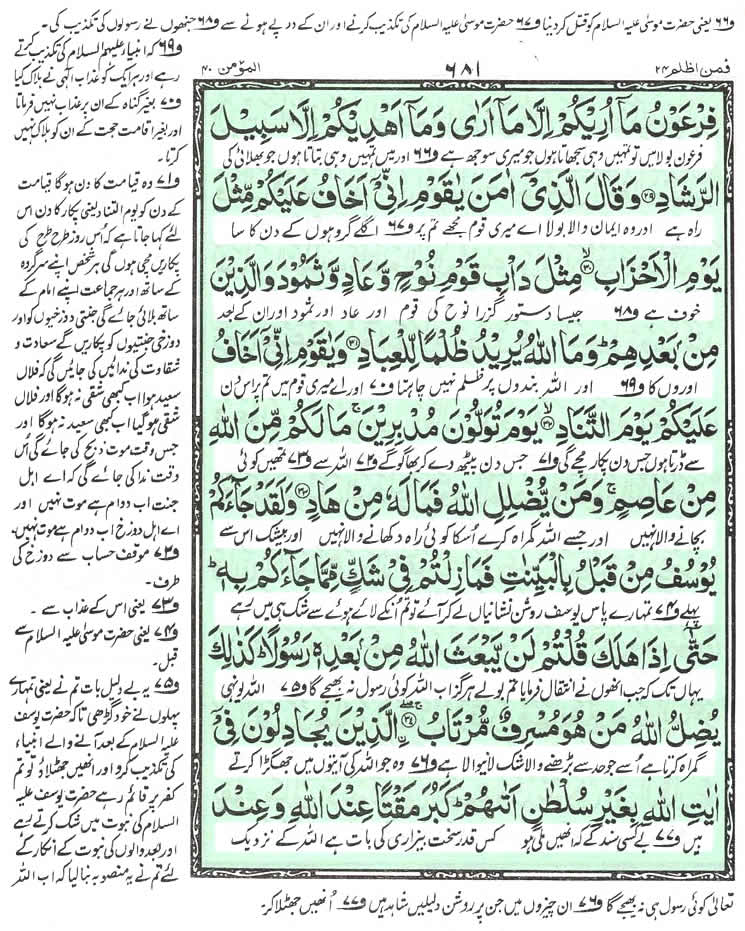 و۶۶ یعنی حضرت موسیٰ علیہ السلام کو قتل کر دینا و۶۷ حضرت موسیٰ علیہ السلام کی تکذیب کرنے اور ان کے درپے ہونے سے و۶۸ جنھوں نے رسولوں کی تکذیب کی۔
فمن اظلم ۲۴
۶۸۱
المؤمن ۴۰
فِرْعَوْنُ مَاۤ اُرِیْكُمْ اِلَّا مَاۤ اَرٰی وَمَاۤ اَهْدِیْكُمْ اِلَّا سَبِیْلَ
فرعون بولا میں تو تمہیں وہی سجھاتا ہوں جو میری سوجھ ہے و۶۶ اور میں تمہیں وہی بتاتا ہوں جو بھلائی کی
الرَّشَادِ ﴿۲۹﴾ وَقَالَ الَّذِیْۤ اٰمَنَ یٰقَوْمِ اِنِّیْۤ اَخَافُ عَلَیْكُمْ مِّثْلَ
راہ ہے اور وہ ایمان والا بولا اے میری قوم مجھے تم پر و۶۷ اگلے گروہوں کے دن کا سا
یَوْمِ الْاَحْزَابِ ﴿۳۰﴾ۙ مِثْلَ دَاْبِ قَوْمِ نُوْحٍ وَّعَادٍ وَّثَمُوْدَ وَالَّذِیْنَ
خوف ہے و۶۸ جیسا دستور گزرا نوح کی قوم اور عاد اور ثمود اور ان کے بعد
مِنْۢ بَعْدِهِمْ ؕ وَمَا اللّٰهُ یُرِیْدُ ظُلْمًا لِّلْعِبَادِ ﴿۳۱﴾ وَیٰقَوْمِ اِنِّیْۤ اَخَافُ
اوروں کا و۶۹ اور اللہ بندوں پر ظلم نہیں چاہتا و۷۰ اور اے میری قوم میں تم پر اس دن
عَلَیْكُمْ یَوْمَ التَّنَادِ ﴿۳۲﴾ۙ یَوْمَ تُوَلُّوْنَ مُدْبِرِیْنَ ۚ مَا لَكُمْ مِّنَ اللّٰهِ
سے ڈرتا ہوں جس دن پکار مچے گی و۷۱ جس دن پیٹھ دے کر بھاگو گے و۷۲ اللہ سے و۷۳ تمھیں کوئی
مِنْ عَاصِمٍ ۚ وَمَنْ یُّضْلِلِ اللّٰهُ فَمَا لَهٗ مِنْ هَادٍ ﴿۳۳﴾ وَلَقَدْ جَآءَكُمْ
بچانے والا نہیں اور جسے اللہ گمراہ کرے اس کا کوئی راہ دکھانے والا نہیں اور بیشک اس سے
یُوْسُفُ مِنْ قَبْلُ بِالْبَیِّنٰتِ فَمَا زِلْتُمْ فِیْ شَكٍّ مِّمَّا جَآءَكُمْ بِهٖ ؕ
پہلے و۷۴ تمہارے پاس یوسف روشن نشانیاں لے کر آئے تو تم ان کے لائے ہوئے سے شک ہی میں رہے
حَتّٰۤی اِذَا هَلَكَ قُلْتُمْ لَنْ یَّبْعَثَ اللّٰهُ مِنْۢ بَعْدِهٖ رَسُوْلًا ؕ كَذٰلِكَ
یہاں تک کہ جب انھوں نے انتقال فرمایا تم بولے ہرگز اب اللہ کوئی رسول نہ بھیجے گا و۷۵ اللہ یونہی
یُضِلُّ اللّٰهُ مَنْ هُوَ مُسْرِفٌ مُّرْتَابُ ﴿۳۴﴾ ۣۚۖ الَّذِیْنَ یُجَادِلُوْنَ فِیْۤ
گمراہ کرتا ہے اسے جو حد سے بڑھنے والا شک لانیوالا ہے و۷۶ وہ جو اللہ کی آیتوں میں جھگڑا کرتے
اٰیٰتِ اللّٰهِ بِغَیْرِ سُلْطٰنٍ اَتٰىهُمْ ؕ كَبُرَ مَقْتًا عِنْدَ اللّٰهِ وَعِنْدَ
ہیں و۷۷ بے کسی سند کے کہ انھیں ملی ہو کس قدر سخت بیزاری کی بات ہے اللہ کے نزدیک
و۶۹ کہ انبیاء علیہم السلام کی تکذیب کرتے
رہے اور ہر ایک کو عذاب الٰہی نے ہلاک کیا
و۷۰ بغیر گناہ کے ان پر عذاب نہیں فرماتا
اور بغیر اقامت حجت کے ان کو ہلاک نہیں
کرتا۔
و۷۱ وہ قیامت کا دن ہوگا قیامت
کے دن کو یوم التناد یعنی پکار کا دن اس
لئے کہا جاتا ہے کہ اس روز طرح طرح کی
پکاریں مچی ہوں گی ہر شخص اپنے سرگروہ
کے ساتھ اور ہر جماعت اپنے امام کے
ساتھ بلائی جائے گی جنتی دوزخیوں کو اور
دوزخی جنتیوں کو پکاریں گے سعادت و
شقاوت کی ندائیں کی جائیں گی کہ فلاں
سعید ہوا اب کبھی شقی نہ ہوگا اور فلاں
شقی ہو گیا اب کبھی سعید نہ ہوگا اور
جس وقت موت ذبح کی جائے گی اس
وقت ندا کی جائے گی کہ اے اہل
جنت اب دوام ہے موت نہیں اور
اے اہل دوزخ اب دوام ہے موت نہیں۔
و۷۲ موقف حساب سے دوزخ کی
طرف۔
و۷۳ یعنی اس کے عذاب سے۔
و۷۴ یعنی حضرت موسیٰ علیہ السلام سے
قبل۔
و۷۵ یہ بے دلیل بات تم نے یعنی تمہارے
پہلوں نے خود گڑھی تاکہ حضرت یوسف
علیہ السلام کے بعد آنے والے انبیاء
کی تکذیب کرو اور انھیں جھٹلاؤ تو تم
کفر پر قائم رہے حضرت یوسف علیہ
السلام کی نبوت میں شک کرتے رہے
اور بعد والوں کی نبوت کے انکار کے
لئے تم نے یہ منصوبہ بنا لیا کہ اب اللہ
تعالیٰ کوئی رسول ہی نہ بھیجے گا و۷۶ ان چیزوں میں جن پر روشن دلیلیں شاہد ہیں و۷۷ انھیں جھٹلا کر۔